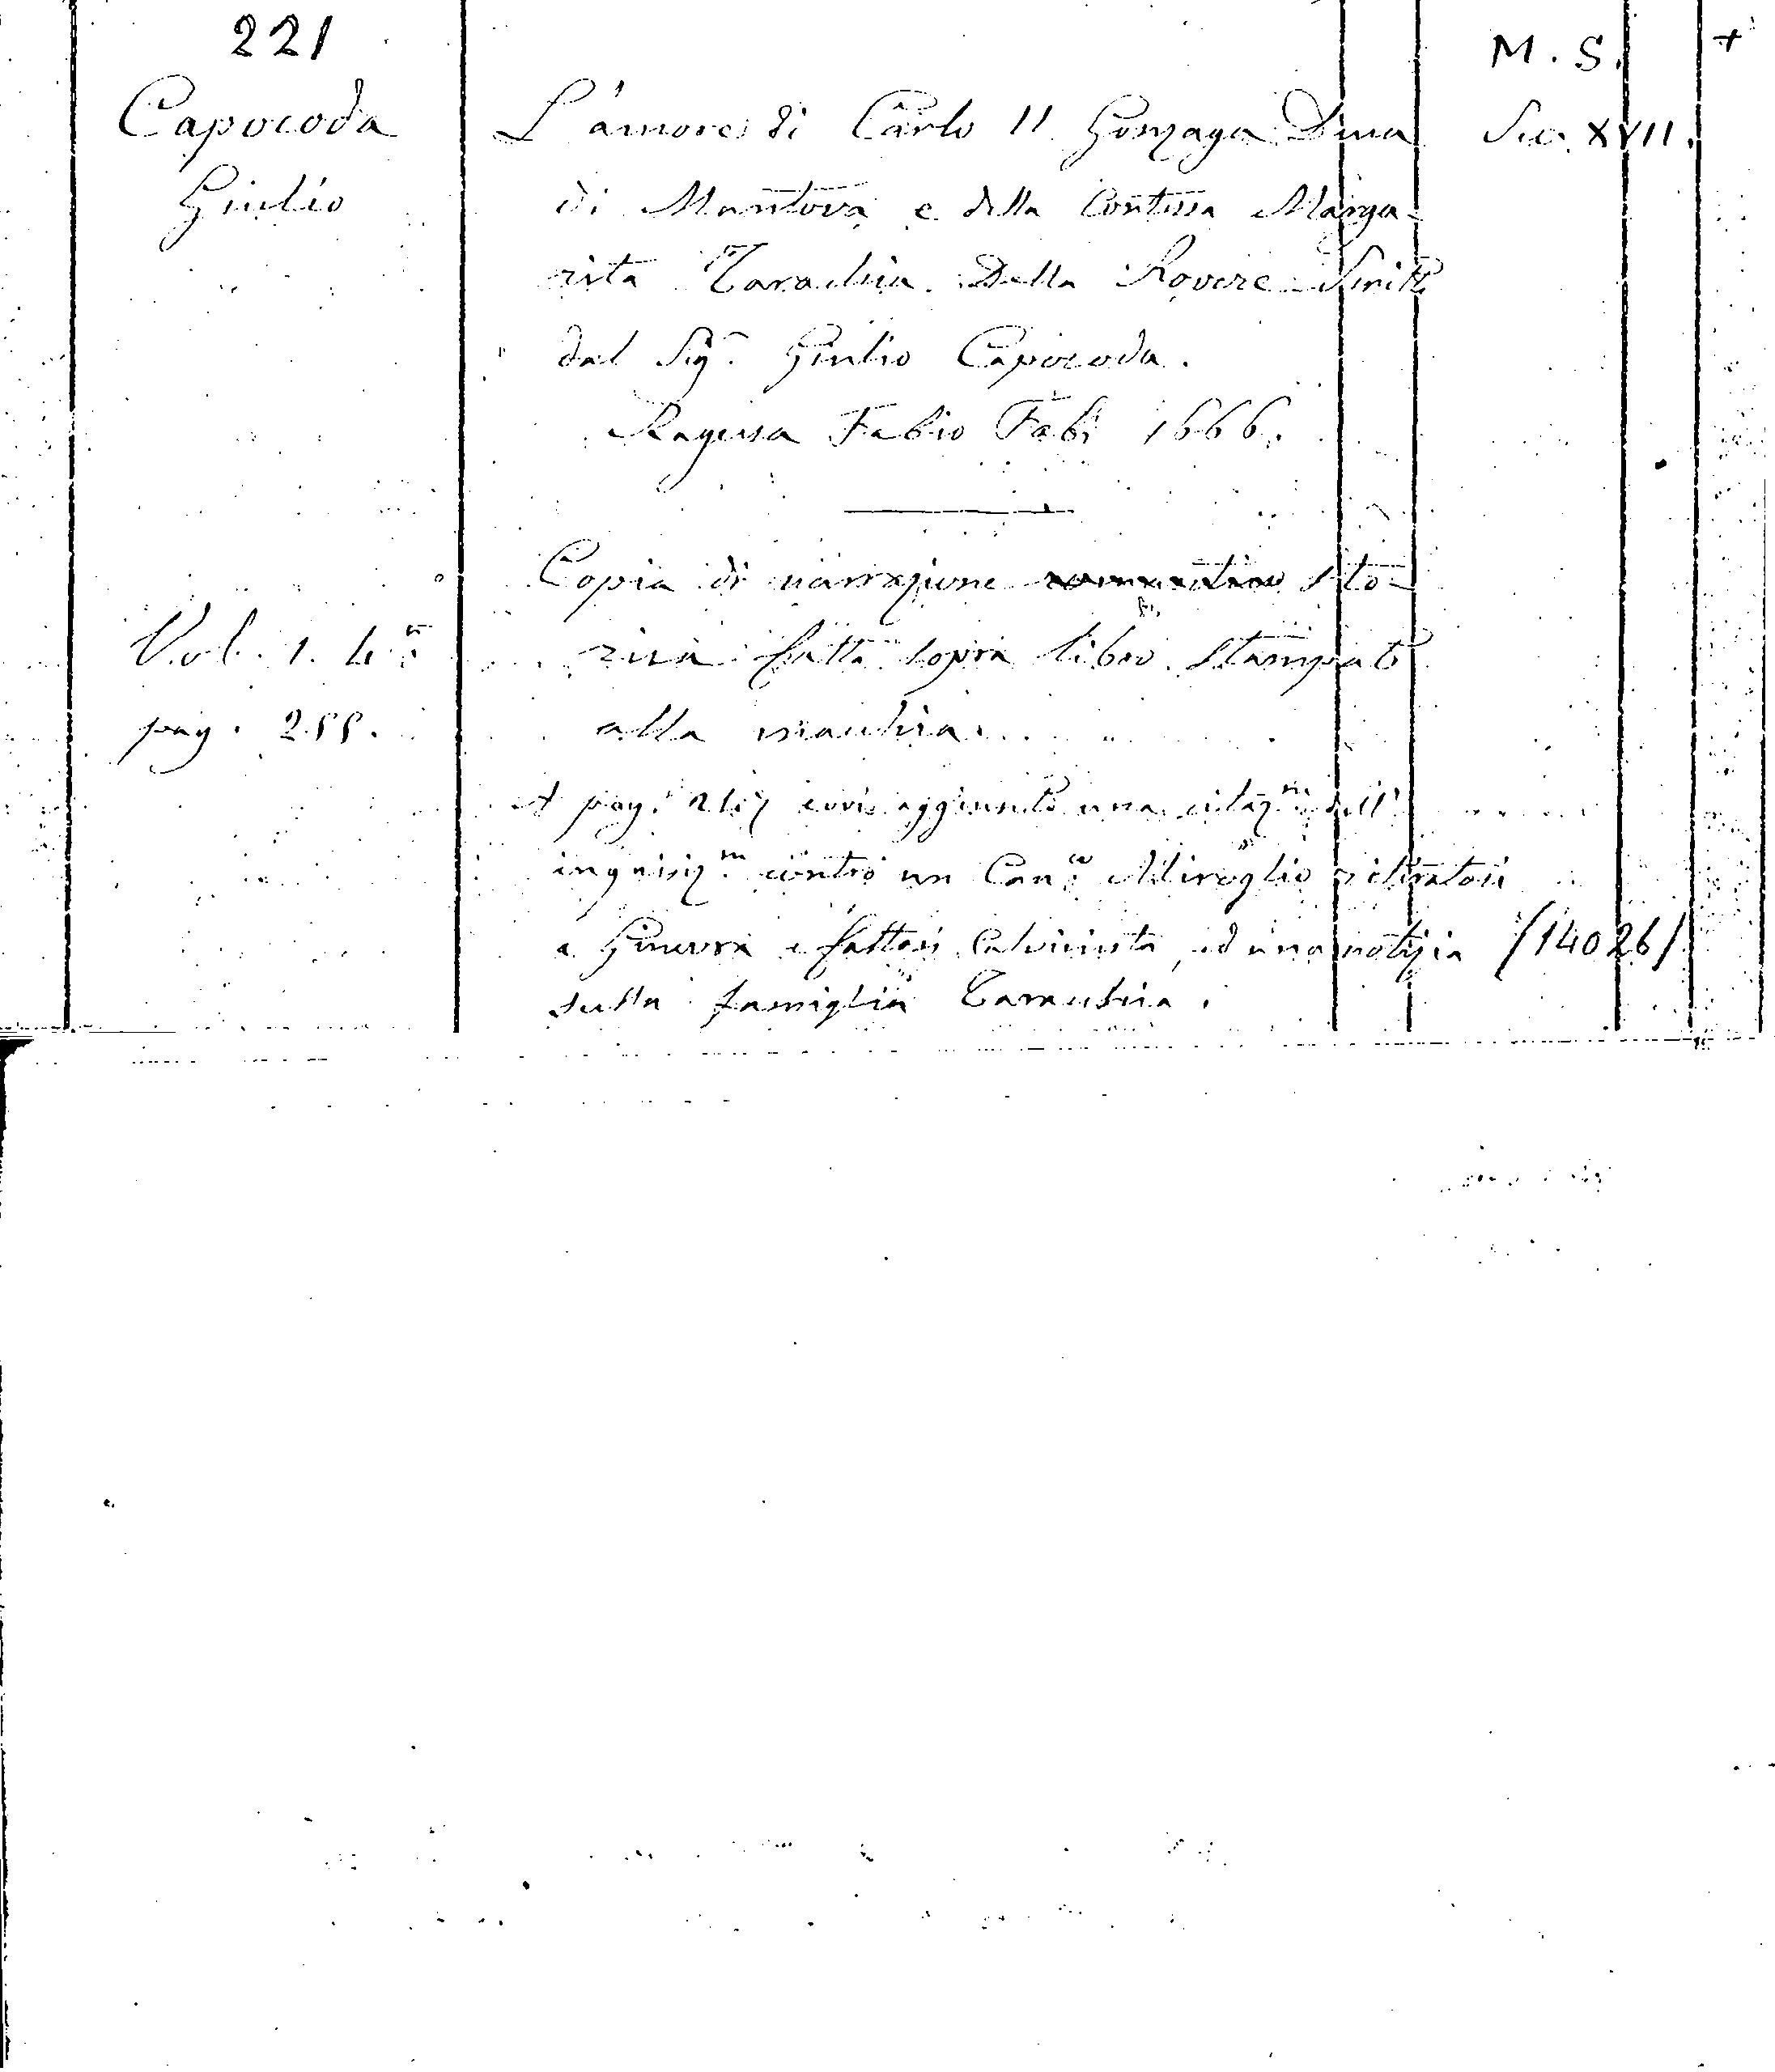 221
M. S. +
Capocoda
Giulio
L'amore di Carlo II Gonzaga Duca
Sec. XVII.
di Mantova e della Contessa Marga-
rita Tarachia Della Rovere Scritti
dal Sig.r Giulio Capocoda.
Ragusa Fabio Fabi 1666.
Copia di narrazione sto-
Vol. 1. 4.o
rica fatta sopra libro stampato
pag. 255.
alla macchia.
A pag. evvi aggiunto una citaz.ne dell'
inquisiz.ne contro un Can.co Miroglio ritiratosi
a Ginevra e fattosi Calvinista, ed una notizia
(14026)
sulla famiglia Tarachia.